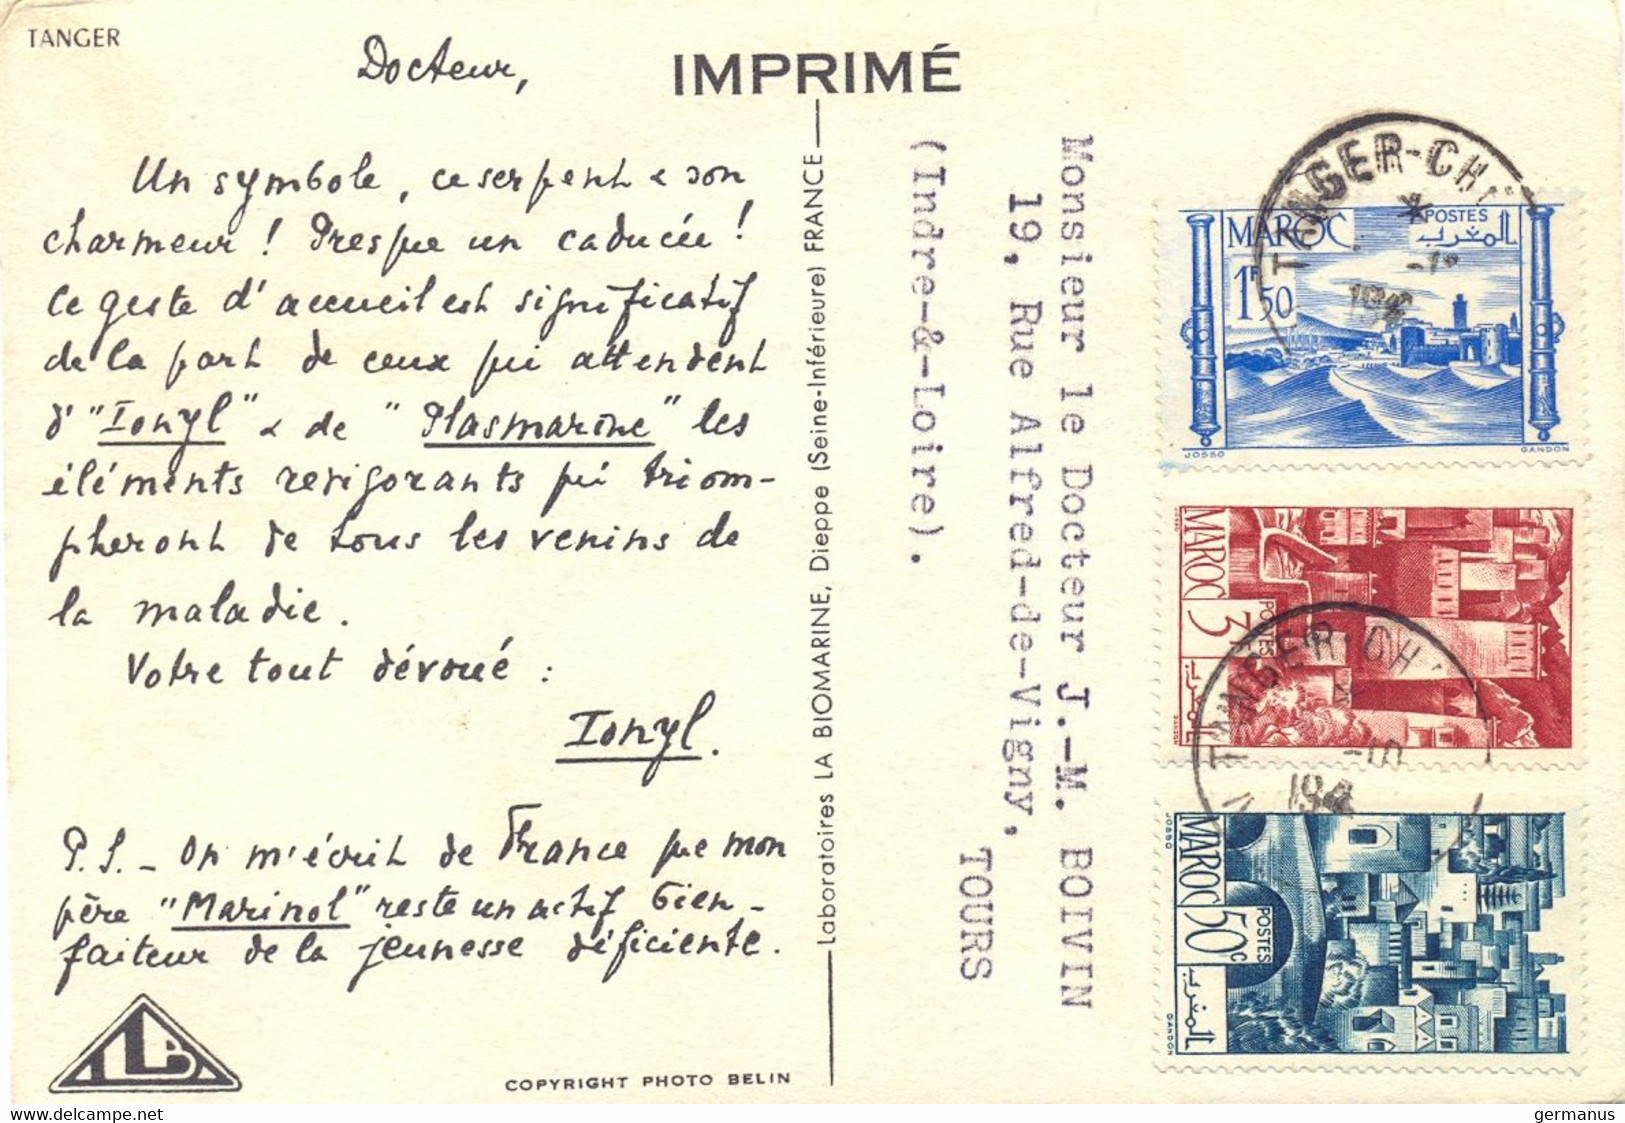 TANGER
Docteur,
IMPRIMÉ
Un symbole, ce serpent & son
charmeur ! Presque un caducée !
Ce geste d'accueil est significatif
de la part de ceux qui attendent
d'"Ionyl" & de "Plasmarine" les
éléments revigorants qui triom-
pheront de tous les venins de
la maladie.
Votre tout dévoué :
Ionyl.
P.S. – On m'écrit de France que mon
père "Marinol" reste un actif bien-
faiteur de la jeunesse déficiente.
COPYRIGHT PHOTO BELIN
Laboratoires LA BIOMARINE, Dieppe (Seine-Inférieure) FRANCE
Monsieur le Docteur J.-M. BOIVIN
19, Rue Alfred-de-Vigny,
TOURS
(Indre-&-Loire).
TANGER-CH
194
MAROC
POSTES
المغرب
1F50
JOSSO
GANDON
MAROC
3F
POSTES
المغرب
TANGER-CH
194
JOSSO
MAROC
50c
POSTES
المغرب
GANDON
delcampe.net
germanus